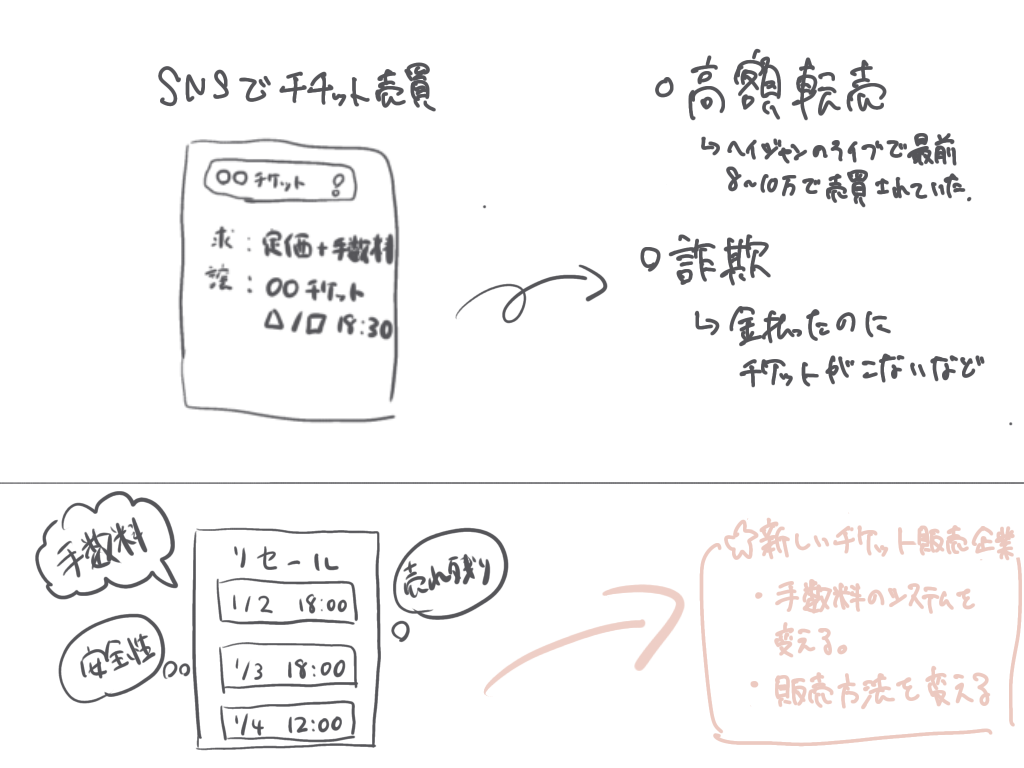 SNSでチケット売買
○○チケット
求：定価＋手数料
譲：○○チケット
△/□ 18:30
○高額転売
↳ヘイジャンのライブで最前
8~10万で売買されていた.
○詐欺
↳金払ったのに
チケットがこないなど
手数料
安全性
リセール
1/2 18:00
1/3 18:00
1/4 12:00
売れ残り
☆新しいチケット販売企業
・手数料のシステムを
変える。
・販売方法を変える